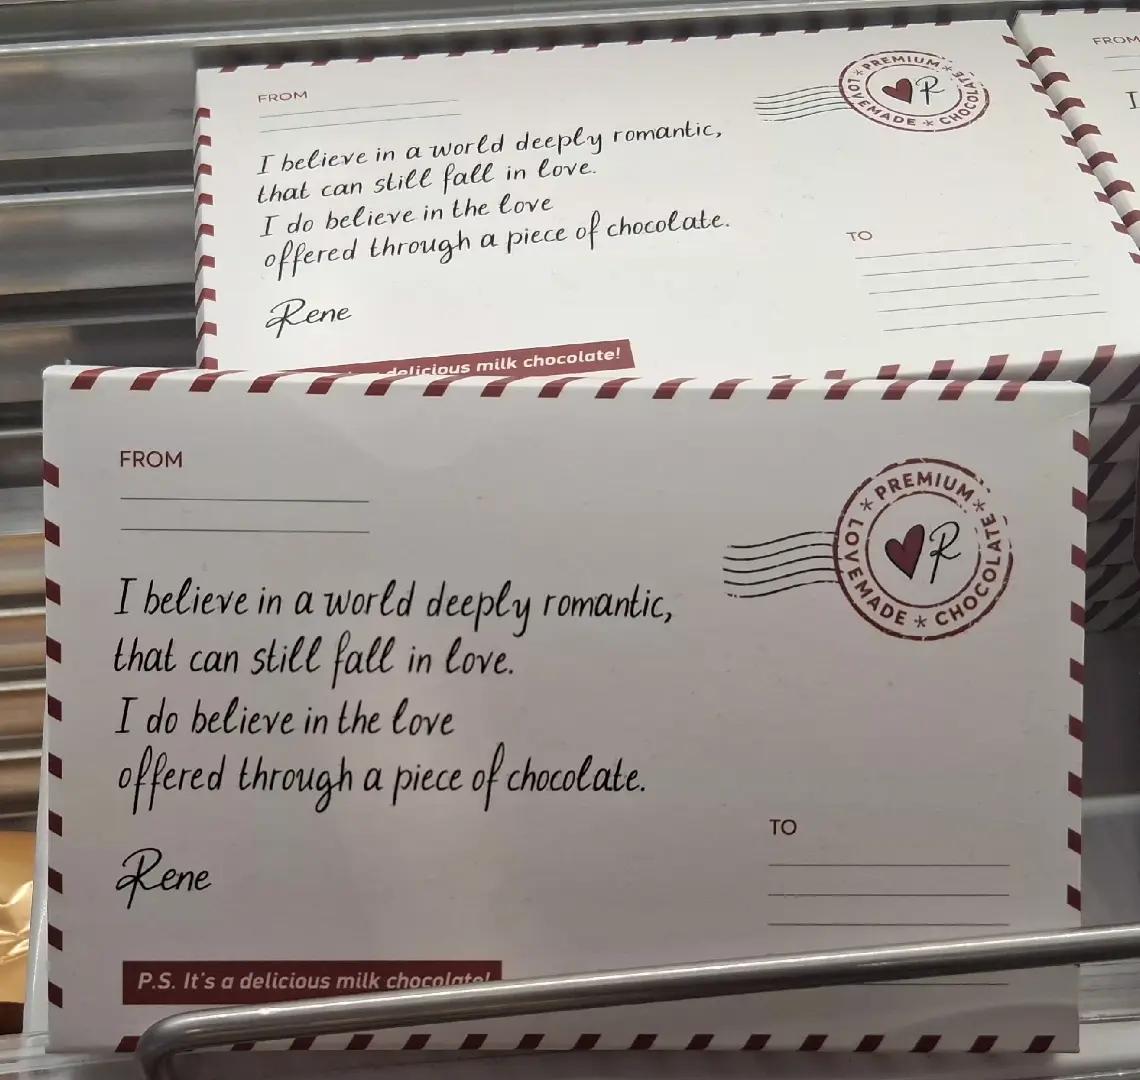 FROM
PREMIUM * CHOCOLATE * LOVEMADE *
R
I believe in a world deeply romantic,
that can still fall in love.
I do believe in the love
offered through a piece of chocolate.
TO
Rene
delicious milk chocolate!
FROM
I
FROM
PREMIUM * CHOCOLATE * LOVEMADE *
R
I believe in a world deeply romantic,
that can still fall in love.
I do believe in the love
offered through a piece of chocolate.
TO
Rene
P.S. It's a delicious milk chocolate!